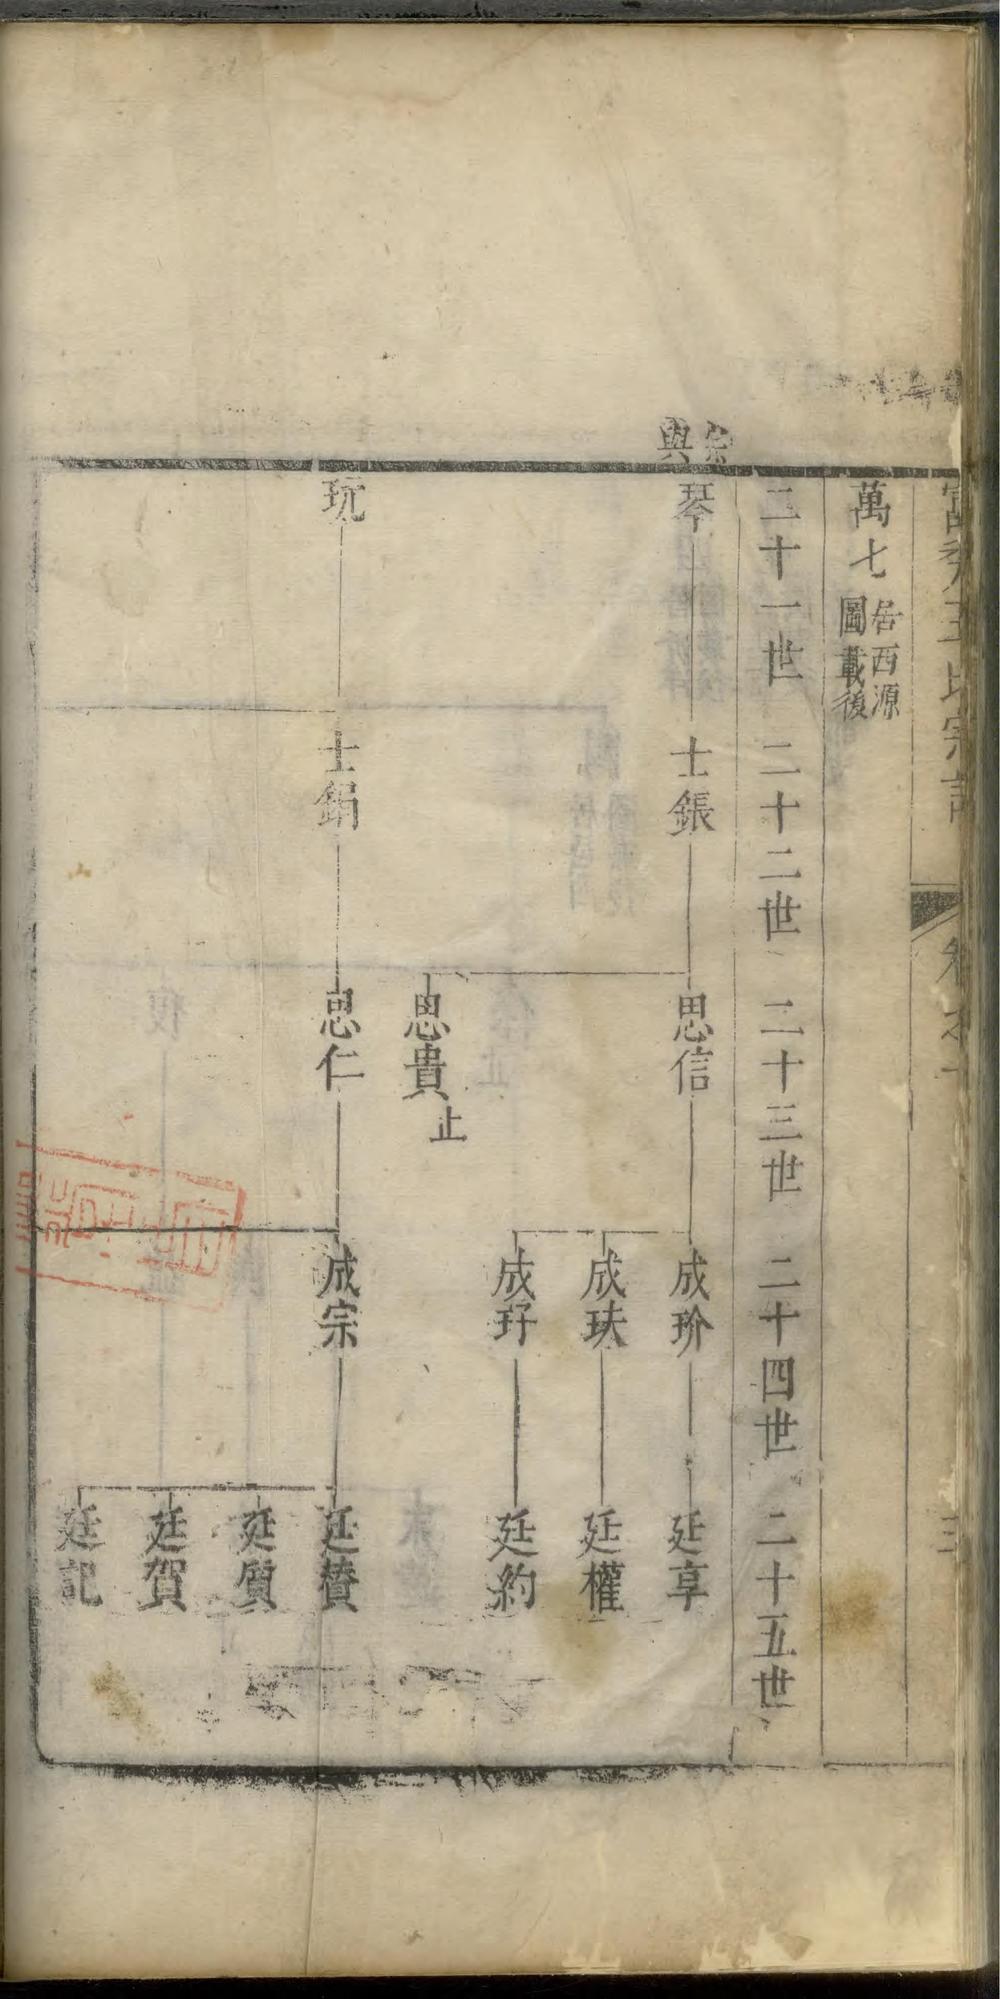 萬七 居西源
圖載後
二十一世 二十二世 二十三世 二十四世 二十五世
宗
興
琴 士鋹 思信 成玠 廷享
成玞 廷權
成玗 廷約
思貴 止
玩 士鋗 思仁 成宗 廷賛
廷質
廷賀
廷記